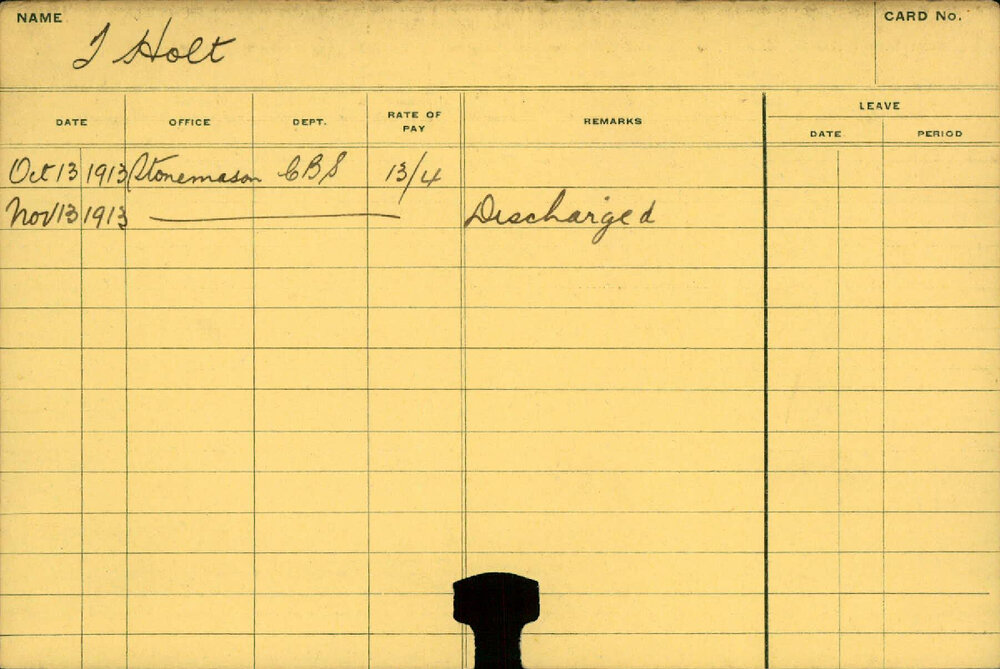 NAME
CARD No.
J Holt
DATE OFFICE DEPT. RATE OF PAY REMARKS LEAVE
DATE PERIOD
Oct 13 1913 Stonemason CBS 13/4
Nov 13 1913 Discharged